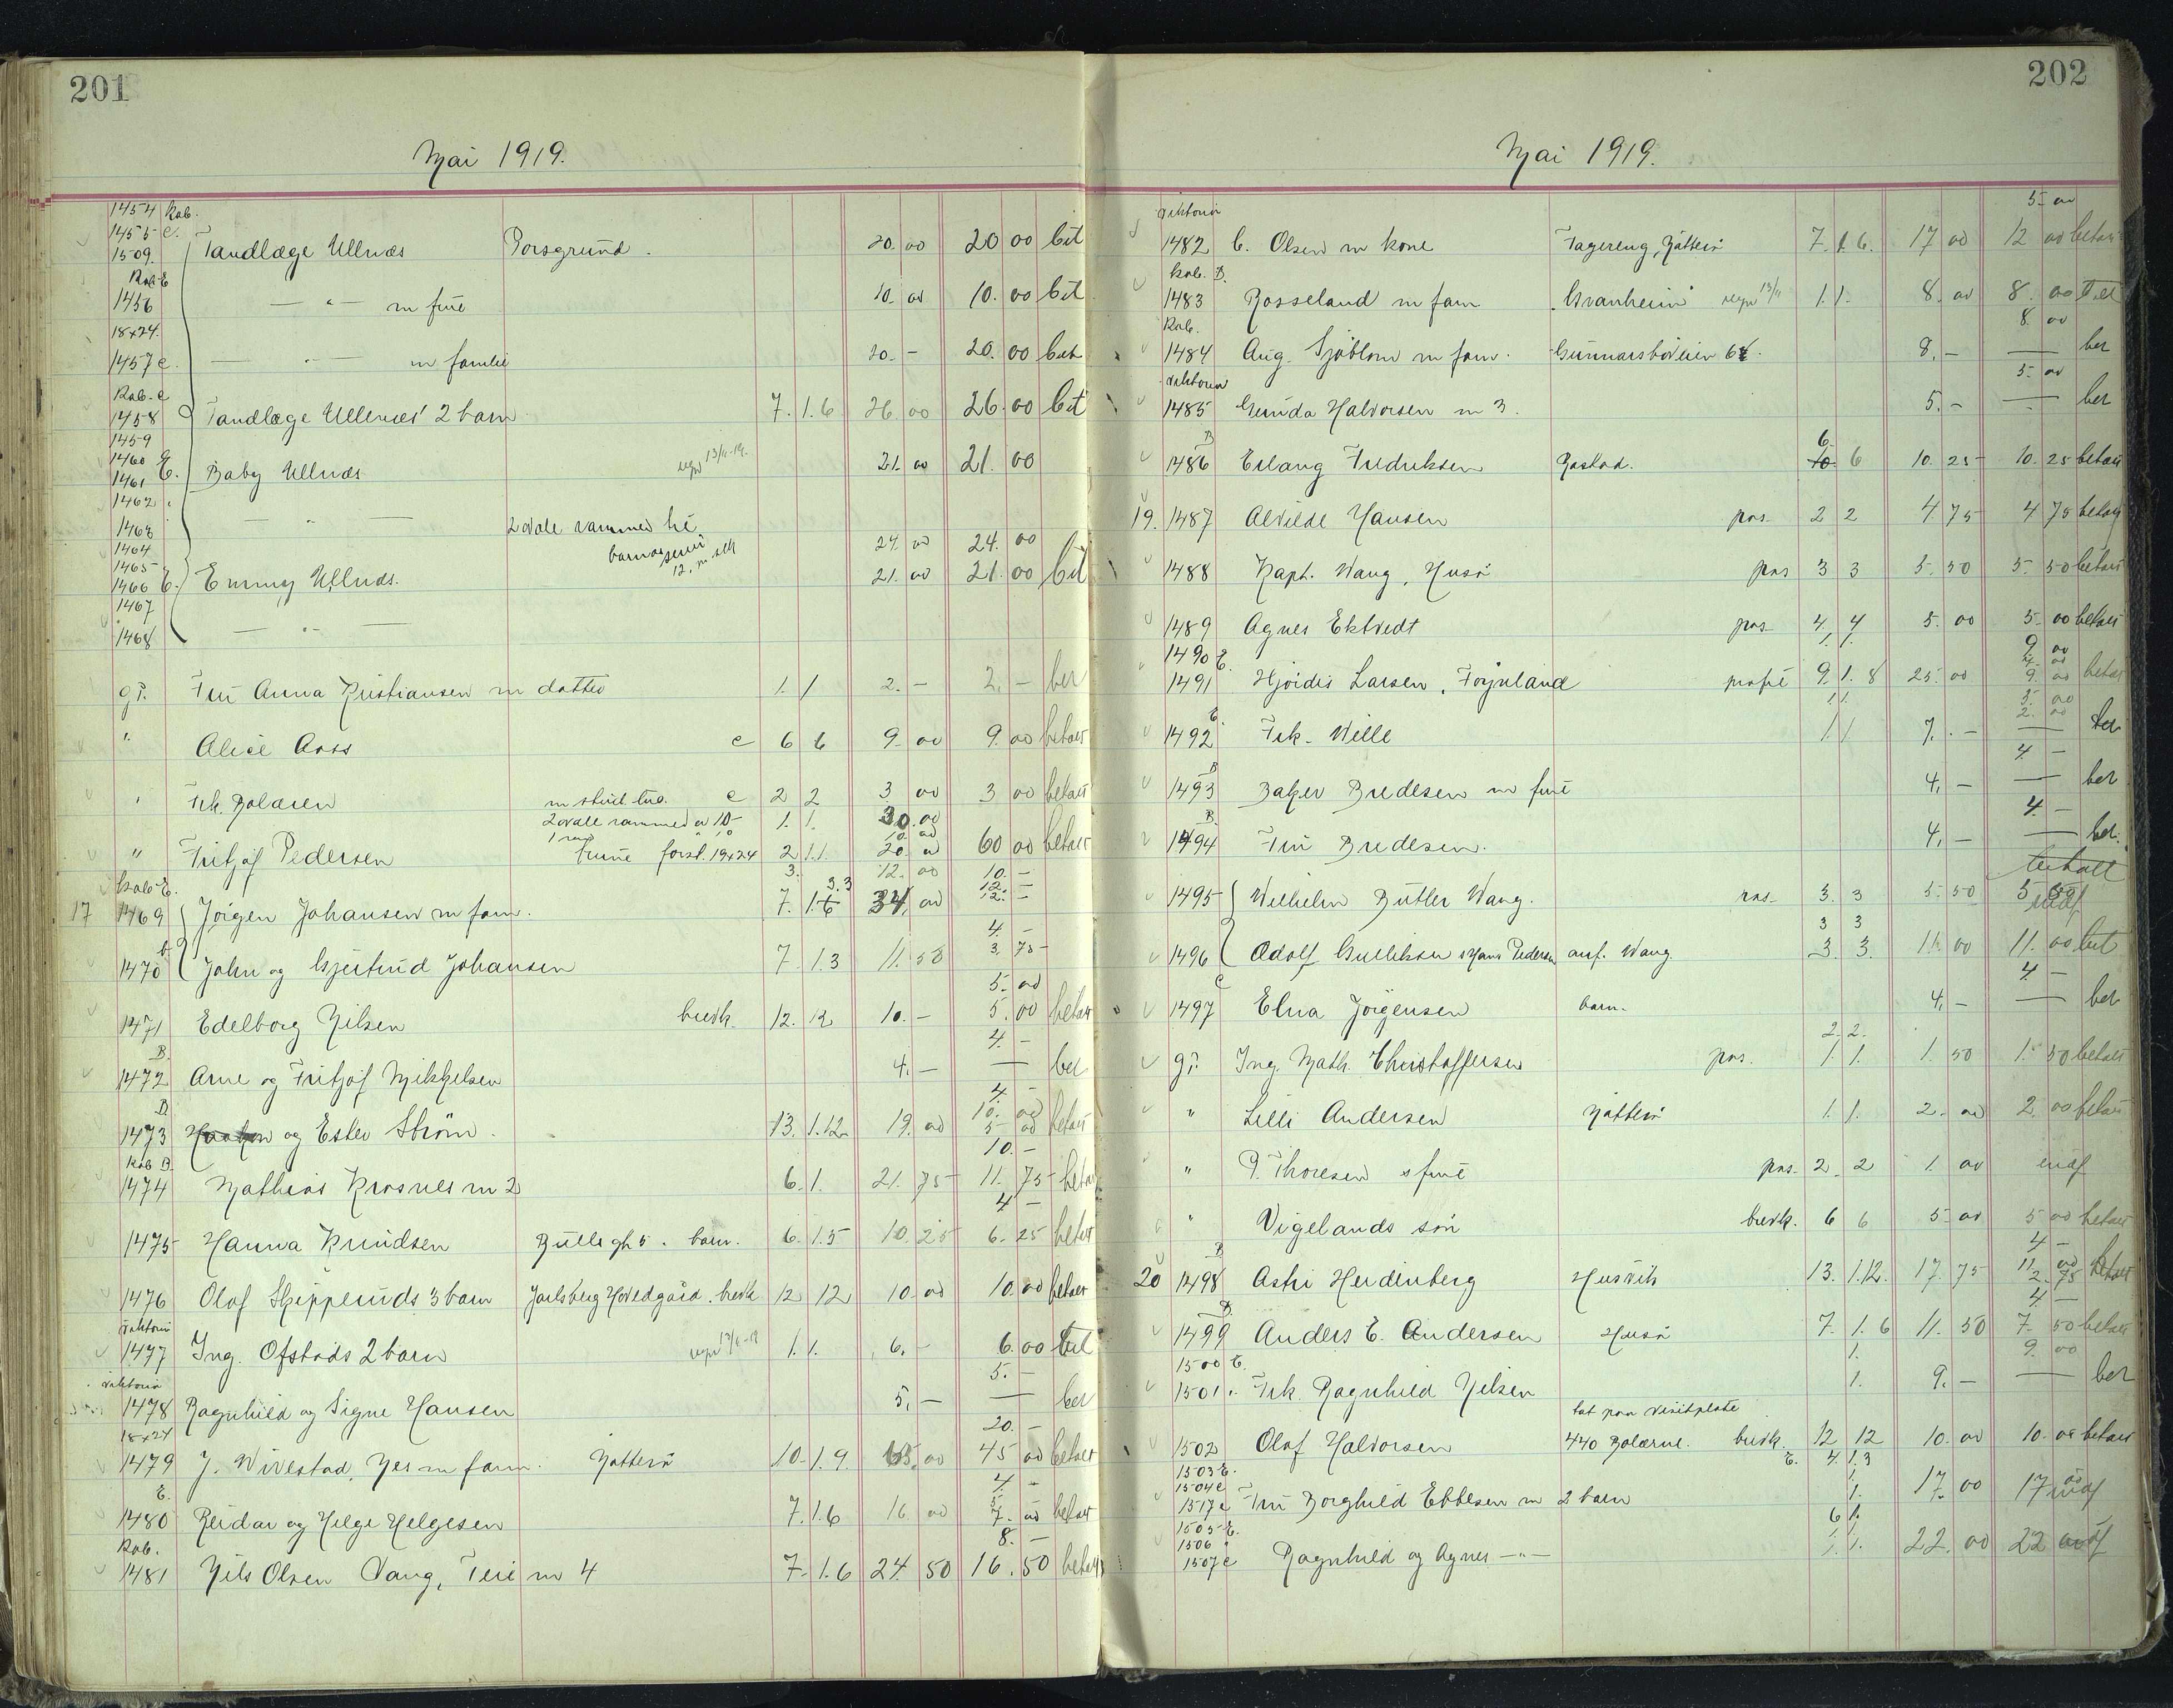 201
Mai 1919.
1454 Kab.
1455 e.
1509. Tandlæge Ullnæs Porsgrund. 20. 00 20 00 bet
Kab. E
1456 — " — m frue 10. 00 10. 00 bet
18x24.
1457 e. — " — m familie 20. - 20. 00 bet
Kab. e
1458 Tandlæge Ullnæs' 2 barn 7. 1. 6 26. 00 26. 00 bet
1459
1460 E
1461 E. Baby Ullnæs regn 13/6-19. 21. 00 21. 00
1462
1463 — " — 2 ovale rammer
1464 24. 00 24. 00
1465
1466 E. Emmy Ullnæs. 21. 00 21. 00 bet
1467
1468 — " —
gt. Fru Anna Kristiansen m datter 1. 1 2. - 2. - ber
" Alice Aass e 6 6 9. 00 9. 00 betalt
" Frk. Bolæren e 2 2 3 00 3 00 betalt
2 ovale rammer a 10- 1. 1. 30. 00
" Fritjof Pedersen forst. 18x24 2 1. 1 20. 00 60 00 betalt
3. 12. 00 10. -
Kab. E. 3. 3 12. -
17 1469 Jörgen Johansen m fam. 7. 1. 6 34. 00 12. -
4. -
1470 John og Gjertrud Johansen 7 1. 3 11. 50 3. 75
5. 00
1471 Edelborg Nilsen brevk. 12. 12 10. - 5. 00 betalt
B. 4. -
1472 Arne og Fritjof Mikkelsen 4. - — ber
B. 4. -
10. 00
1473 og Ester Ström. 13. 1. 12 19. 00 5 00 betalt
Kab B. 10. -
1474 Mathias Krosnes m 2 6. 1. 21. 75 11. 75 betalt
4 -
1475 Hanna Knudsen Bullsgt 5. barn. 6. 1. 5 10. 25 6. 25 betalt
1476 Olaf Skipperuds 3 barn Jarlsberg Hovedgård. brevk 12 12 10. 00 10. 00 betalt
Viktoria
1477 Ing. Ofstads 2 barn regn 13/6-19 1. 1. 6. - 6. 00 bet
Viktoria 5. -
1478 Ragnhild og Signe Hansen 5. - — ber
18x24 20. -
1479 J. Wivestad, Nes m fam. Nötterö 10. 1. 9. 65. 00 45 00 betalt
E. 4. -
5.
1480 Reidar og Helge Helgesen 7. 1. 6 16. 00 7. 00 betalt
Kab. 8. -
1481 Nils Olsen Vang, Teie m 4 7. 1. 6 24. 50 16. 50 betalt
202
Mai 1919.
Viktoria 5. 00
1482 C. Olsen m kone Fagereng, Nötterö 7. 1. 6. 17 00 12 00 betalt
Kab. B.
1483 Rosseland m fam "Granheim" regn 13/6 1. 1. 8. 00 8. 00 bet
Kab. 8. 00
1484 Aug. Sjöblom m fam. Gunnarsböveien 8. - — ber
Viktoria 5. 00
1485 Gunda Halvorsen m 3. 5. - — ber
B 6.
1486 Erling Fredriksen 10 6 10. 25 10. 25 betalt
19. 1487 Alvilde Hansen pas. 2 2 4 75 4 75 betalt
1488 Kapt. Wang, Husö pas 3 3 5. 50 5. 50 betalt
1489 Agnes Ektvedt pas 4. 4 5. 00 5. 00 betalt
1490 E. 1. 1. 9 00
1491 Hjördis Larsen, Föynland profil 9. 1. 8 25. 00 9. 00 betalt
1. 1. 5. 00
E. 2. 00
1492 Frk. Wille 1. 1 7. - — ber
B 4. -
1493 Baker Bredesen m frue 4. - — ber
B. 4. -
1494 Fru Bredesen. 4. - — ber.
1495 Wilhelm Butler Wang. pas. 3. 3 5. 50 5 50
3 3
1496 Adolf Gulliksen & Hans Pedersen anf. Wang. 3. 3. 11. 00 11. 00 bet
C 4. -
1497 Elna Jörgensen barn. 4. - — ber
2. 2.
gt. Ing. Math. Christoffersen pas. 1. 1. 1. 50 1. 50 betalt
" Lilli Andersen Nötterö 1. 1. 2. 00 2. 00 betalt
" P. Thoresen & frue pas. 2. 2 1. 00
" Vigelands sön brevk. 6 6 5. 00 5 00 betalt
B 4 -
11. 00
20 1498 Astri Heidenberg Husvik 13. 1. 12. 17. 75 2. 75 betalt
B. 4. -
1499 Anders E. Andersen Husö 7. 1. 6 11. 50 7. 50 betalt
1500 E. 1. 9. 00
1501 " Frk. Ragnhild Nilsen 1. 9. - — ber
tat paa visitplate
1502 Olaf Halvorsen 440 Bolærne. brevk. 12 12 10. 00 10. 00 betalt
1503 E. E. 4. 1. 3
1504 e 1.
1517 e Fru Borghild Ebbesen m 2 barn 1. 17. 00 17 00
1505 E. 6 1.
1506 " 1.
1507 e Ragnhild og Agnes — " — 1. 1. 22. 00 22